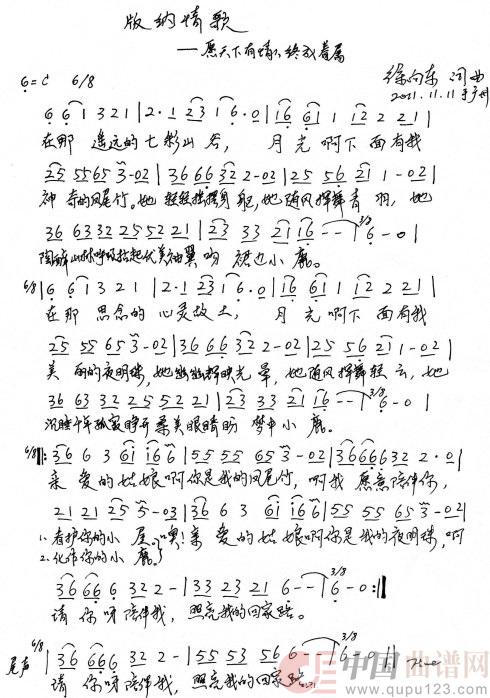 版纳情歌
——愿天下有情人终成眷属
6=C 6/8 徐向东 词曲
2011.11.11 于广州
6 6 1 3 2 1 | 2 · 1 2 3 1 6 · 0 | 1 6 6 1 1 1 2 2 2 1 |
在那 遥远的七彩山谷， 月光啊下面有我
2 5 5 5 6 5 3 - 0 2 | 3 6 6 6 3 2 2 - 0 2 | 2 5 5 6 2 1 1 - 0 2 |
神奇的凤尾竹。她轻轻 她随风 她
3 6 6 3 3 2 2 5 5 2 2 1 | 2 3 3 3 2 1 1 6 - - | 3/8 6 - 0 |
小鹿。
6/8 | 6 6 1 3 2 1 | 2 · 1 2 3 1 6 · 0 | 1 6 6 1 1 1 2 2 2 1 |
在那 思念的心灵故土， 月光啊下面有我
2 5 5 5 6 5 3 - 0 2 | 3 6 6 6 3 2 2 - 0 2 | 2 5 5 6 2 1 1 - 0 2 |
美丽的夜明珠，她 她随风 轻云，她
3 6 6 3 3 2 2 5 5 2 2 1 | 2 3 3 3 2 1 1 6 - - | 3/8 6 - 0 |
沉睡千年 睁开柔美眼睛 梦中小鹿。
6/8 ‖: 3 6 6 3 6 1 1 6 6 | 5 5 5 5 6 5 3 - 0 2 | 3 6 6 6 6 3 2 2 · 0 |
亲爱的姑娘啊你是我的凤尾竹，啊我愿意陪伴你，
2 1 2 1 2 5 5 - 0 3 | 3 6 6 3 6 1 1 6 6 | 5 5 5 5 6 5 3 - 0 2 |
1. 看护你的小屋。噢！亲爱的姑娘啊你是我的夜明珠，啊
2. 化作你的小鹿。
3 6 6 6 6 3 2 2 - | 3 3 2 3 2 1 6 - - | 3/8 6 - 0 :‖
请你呀陪伴我，照亮我的回家路。
尾声 6/8 | 3 6 6 6 6 3 2 2 - | 5 5 5 3 5 2 6 - - | 3/8 6 - 0 ‖ Fine
请你呀陪伴我，照亮我的回家路。
中国曲谱网
www.qupu123.com